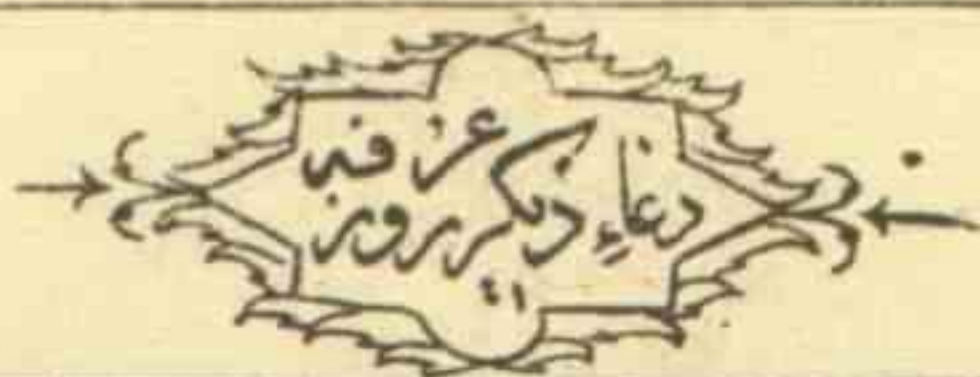 دعاءِ دیگر روز عرفه